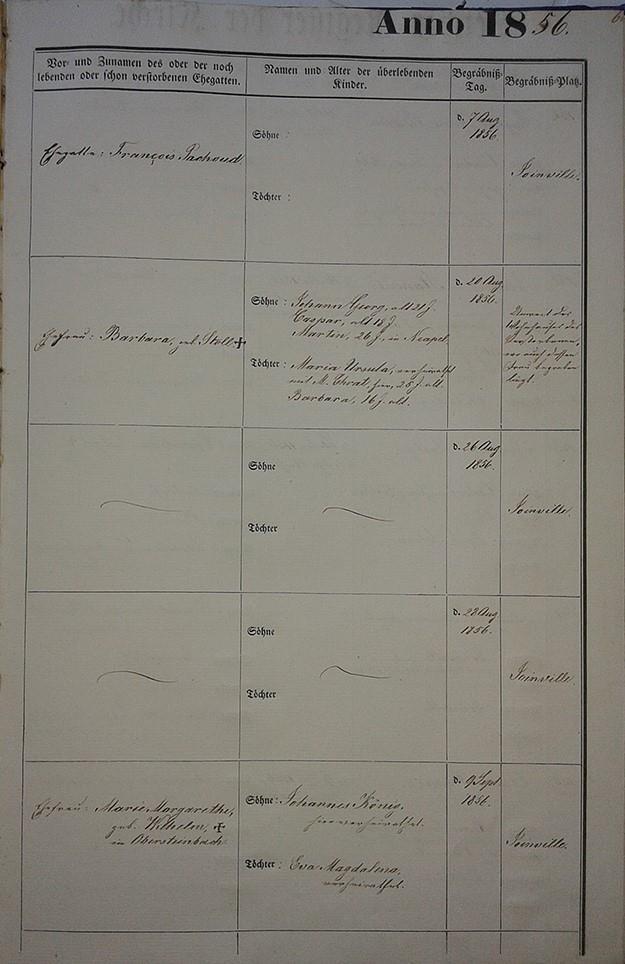 Anno 1856.
Vor- und Zunamen des oder der noch
lebenden oder schon verstorbenen Ehegatten.
Namen und Alter der überlebenden
Kinder.
Begräbniß-
Tag.
Begräbniß-Platz.
Ehegatte: François Pachoud.
Söhne :
Töchter :
d. 7 Aug
1856.
Joinville.
Ehefrau: Barbara, geb. Stoll ✝
Söhne : Johann Georg, alt 21 J.
Caspar, alt 18 J.
Martin, 26 J., in Neapel.
Töchter : Maria Ursula, verheirathet
mit M. hier, 25 J. alt.
Barbara, 16 J. alt.
d. 20 Aug
1856.
Unweit des
Wohnhauses des
Verstorbenen,
wo auch dessen
Frau begraben
liegt.
Söhne
Töchter
d. 26 Aug
1856.
Joinville.
Söhne
Töchter
d. 28 Aug
1856.
Joinville.
Ehefrau: Marie Margarethe,
geb. Wilhelm, ✝
in Obersteinbach.
Söhne : Johannes König,
hier verheirathet.
Töchter : Eva Magdalena,
verheirathet.
d. 9 Sept
1856.
Joinville.